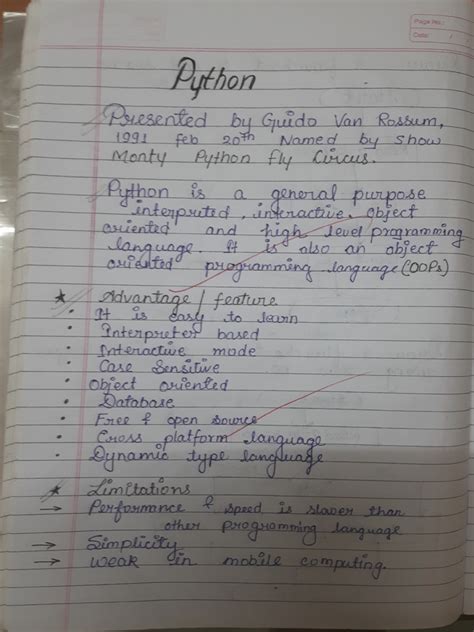 Page No.:
Date: / /
Python
Presented by Guido Van Rossum,
1991 feb 20th Named by show
Monty Python Fly Circus.
Python is a general purpose
interpreted, interactive, object
oriented and high level programming
language. It is also an object
oriented programming language (OOPs)
Advantage / feature
• It is easy to learn
• Interpreter based
• Interactive mode
• Case Sensitive
• Object oriented
• Database
• Free & open source
• Cross platform language
• Dynamic type language
Limitations
→ Performance & speed is slower than
other programming language
→ Simplicity
→ Weak in mobile computing.